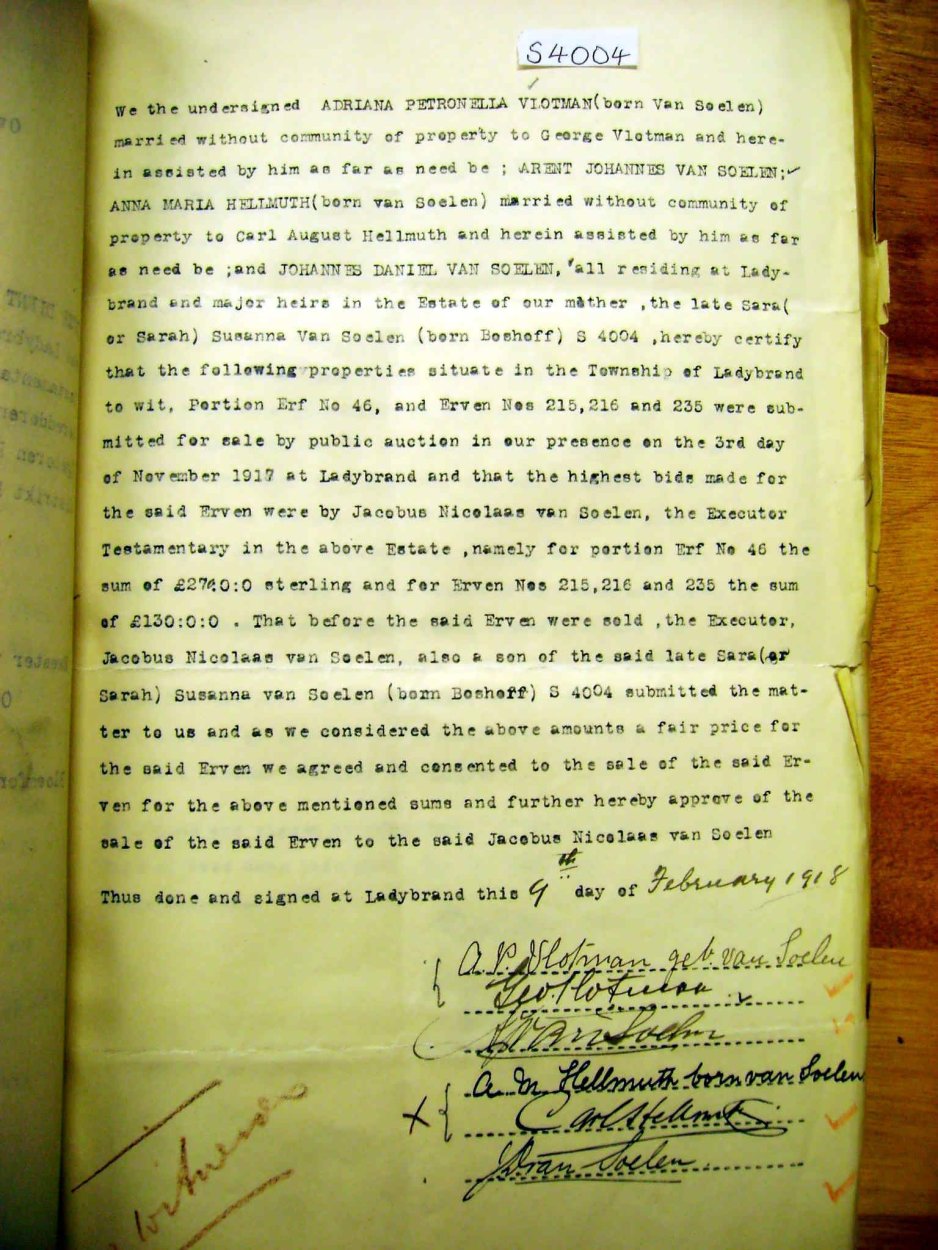 S4004
We the undersigned ADRIANA PETRONELLA VLOTMAN(born Van Soelen)
married without community of property to George Vlotman and here-
in assisted by him as far as need be ; ARENT JOHANNES VAN SOELEN;
ANNA MARIA HELLMUTH(born van Soelen) married without community of
property to Carl August Hellmuth and herein assisted by him as far
as need be ;and JOHANNES DANIEL VAN SOELEN, all residing at Lady-
brand and major heirs in the Estate of our mother ,the late Sara(
or Sarah) Susanna Van Soelen (born Boshoff) S 4004 ,hereby certify
that the following properties situate in the Township of Ladybrand
to wit, Portion Erf No 46, and Erven Nos 215,216 and 235 were sub-
mitted for sale by public auction in our presence on the 3rd day
of November 1917 at Ladybrand and that the highest bids made for
the said Erven were by Jacobus Nicolaas van Soelen, the Executor
Testamentary in the above Estate ,namely for portion Erf No 46 the
sum of £270:0:0 sterling and for Erven Nos 215,216 and 235 the sum
of £130:0:0 . That before the said Erven were sold ,the Executor,
Jacobus Nicolaas van Soelen, also a son of the said late Sara(or
Sarah) Susanna van Soelen (born Boshoff) S 4004 submitted the mat-
ter to us and as we considered the above amounts a fair price for
the said Erven we agreed and consented to the sale of the said Er-
ven for the above mentioned sums and further hereby approve of the
sale of the said Erven to the said Jacobus Nicolaas van Soelen
Thus done and signed at Ladybrand this 9th day of February 1918
A. P. Vlotman geb. van Soelen
Geo. Vlotman
AJ van Soelen
A. M. Hellmuth born van Soelen
X Carl Hellmuth
JD van Soelen